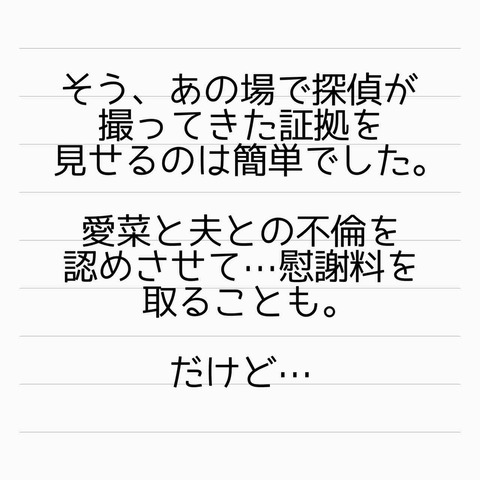 そう、あの場で探偵が
撮ってきた証拠を
見せるのは簡単でした。
愛菜と夫との不倫を
認めさせて…慰謝料を
取ることも。
だけど…